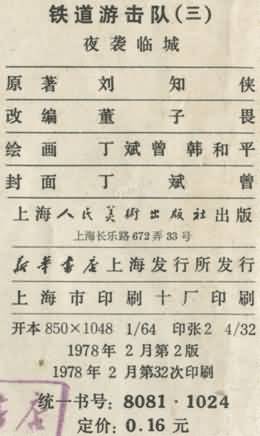 铁道游击队(三)
夜袭临城
原著 刘知侠
改编 董子畏
绘画 丁斌曾 韩和平
封面 丁斌曾
上海人民美术出版社出版
上海长乐路672弄33号
新华书店上海发行所发行
上海市印刷十厂印刷
开本850×1048 1/64 印张2 4/32
1978年2月第2版
1978年2月第32次印刷
统一书号: 8081·1024
定价: 0.16元